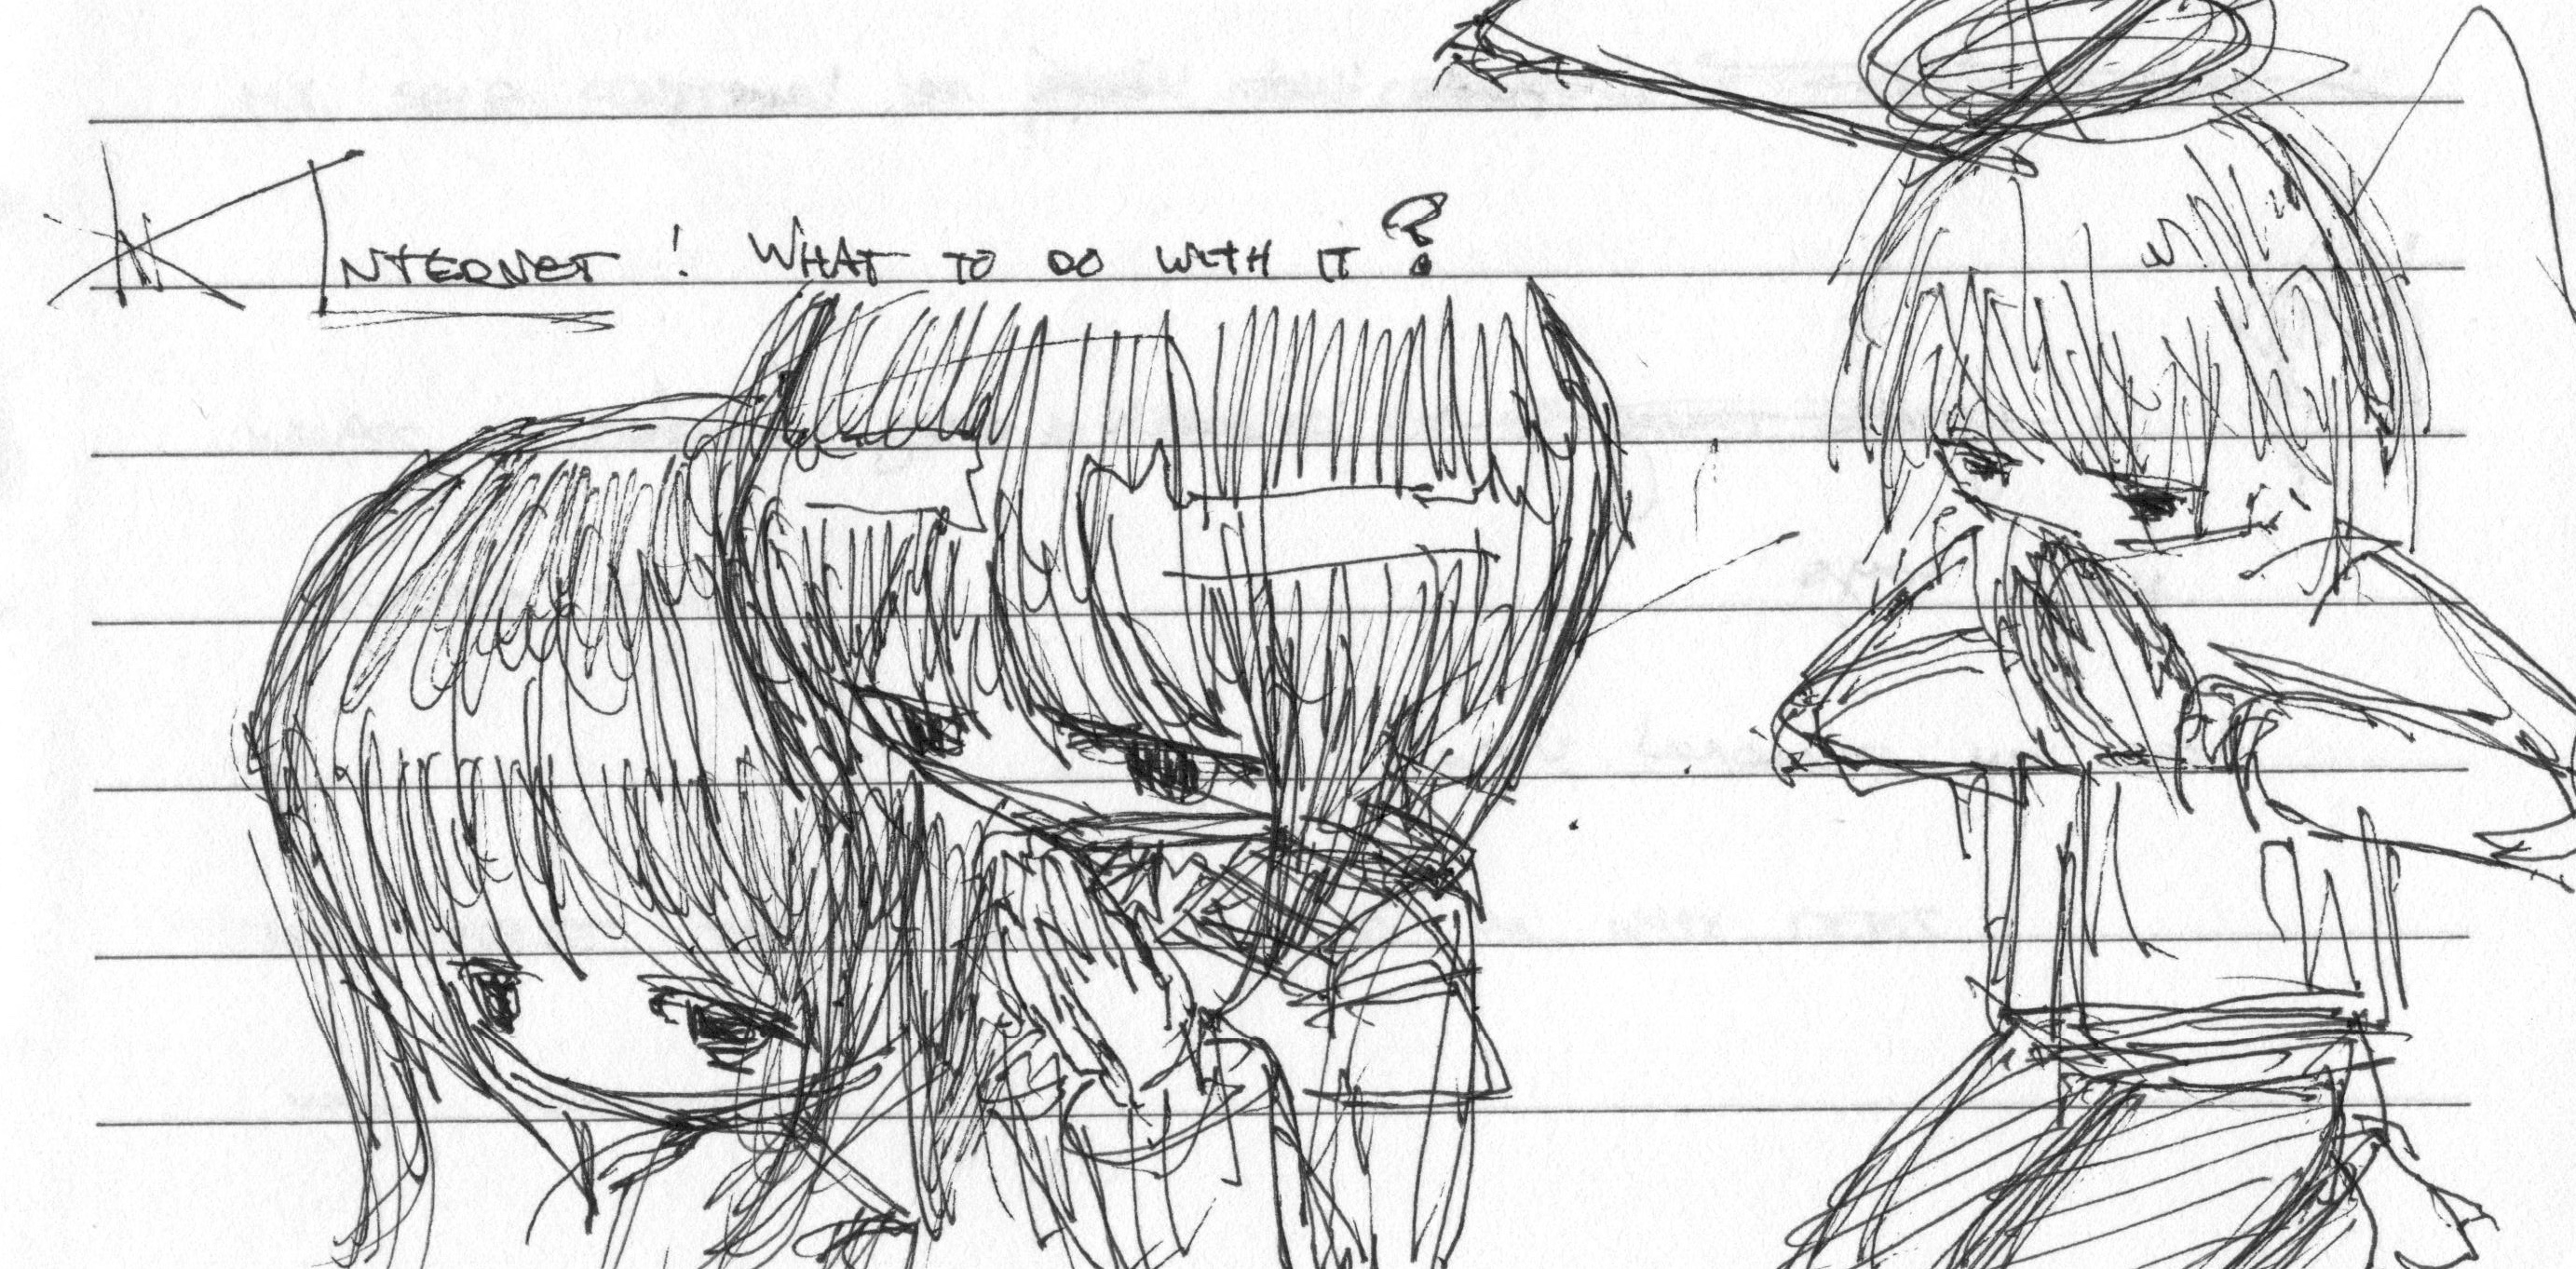 INTERNET! WHAT TO DO WITH IT?